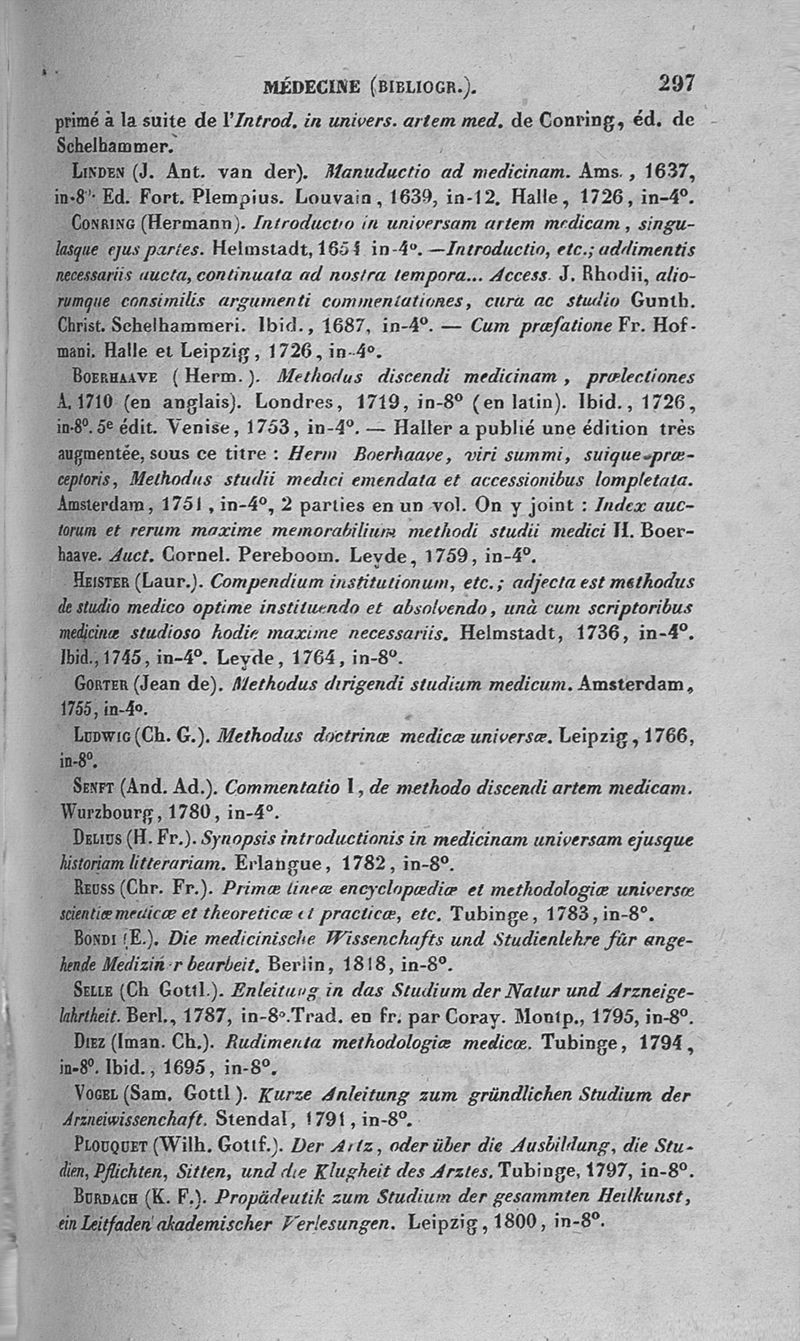 MÉDECINE (BIBLIOGR.). 297
primé à la suite de l'Introd. in univers. artem med. de Conring, éd. de
Schelhammer.
LINDEN (J. Ant. van der). Manuductio ad medicinam. Ams., 1637,
in-8°. Ed. Fort. Plempius. Louvain, 1639, in-12. Halle, 1726, in-4°.
CONRING (Hermann). Introductio in universam artem medicam, singu-
lasque ejus partes. Helmstadt, 1654 in-4°. — Introductio, etc.; addimentis
necessariis aucta, continuata ad nostra tempora... Access. J. Rhodii, alio-
rumque consimilis argumenti commentationes, cura ac studio Gunth.
Christ. Schelhammeri. Ibid., 1687, in-4°. — Cum præfatione Fr. Hof-
mani. Halle et Leipzig, 1726, in-4°.
BOERHAAVE (Herm.). Methodus discendi medicinam, prælectiones
A. 1710 (en anglais). Londres, 1719, in-8° (en latin). Ibid., 1726,
in-8°. 5e édit. Venise, 1753, in-4°. — Haller a publié une édition très
augmentée, sous ce titre : Herm Boerhaave, viri summi, suique præ-
ceptoris, Methodus studii medici emendata et accessionibus lompletata.
Amsterdam, 1751, in-4°, 2 parties en un vol. On y joint : Index auc-
torum et rerum maxime memorabilium methodi studii medici H. Boer-
haave. Auct. Cornel. Pereboom. Leyde, 1759, in-4°.
HEISTER (Laur.). Compendium institutionum, etc.; adjecta est methodus
de studio medico optime instituendo et absolvendo, unà cum scriptoribus
medicinæ studioso hodie maxime necessariis. Helmstadt, 1736, in-4°.
Ibid., 1745, in-4°. Leyde, 1764, in-8°.
GORTER (Jean de). Methodus dirigendi studium medicum. Amsterdam,
1755, in-4°.
LUDWIG (Ch. G.). Methodus doctrinæ medicæ universæ. Leipzig, 1766,
in-8°.
SENFT (And. Ad.). Commentatio I, de methodo discendi artem medicam.
Wurzbourg, 1780, in-4°.
DELIUS (H. Fr.). Synopsis introductionis in medicinam universam ejusque
historiam litterariam. Erlangue, 1782, in-8°.
REUSS (Chr. Fr.). Primæ lineæ encyclopædiæ et methodologiæ universæ
scientiæ medicæ et theoreticæ et practicæ, etc. Tubinge, 1783, in-8°.
BONDI (E.). Die medicinische Wissenchafts und Studienlehre für ange-
hende Mediziner bearbeit. Berlin, 1818, in-8°.
SELLE (Ch Gottl.). Enleitung in das Studium der Natur und Arzneige-
lahrtheit. Berl., 1787, in-8°. Trad. en fr. par Coray. Montp., 1795, in-8°.
DIEZ (Iman. Ch.). Rudimenta methodologiæ medicæ. Tubinge, 1794,
in-8°. Ibid., 1695, in-8°.
VOGEL (Sam. Gottl). Kurze Anleitung zum gründlichen Studium der
Arzneiwissenchaft. Stendal, 1791, in-8°.
PLOUQUET (Wilh. Gottf.). Der Artz, oder über die Ausbildung, die Stu-
dien, Pflichten, Sitten, und die Klugheit des Arztes. Tubinge, 1797, in-8°.
BURDACH (K. F.). Propädeutik zum Studium der gesammten Heilkunst,
ein Leitfaden akademischer Verlesungen. Leipzig, 1800, in-8°.